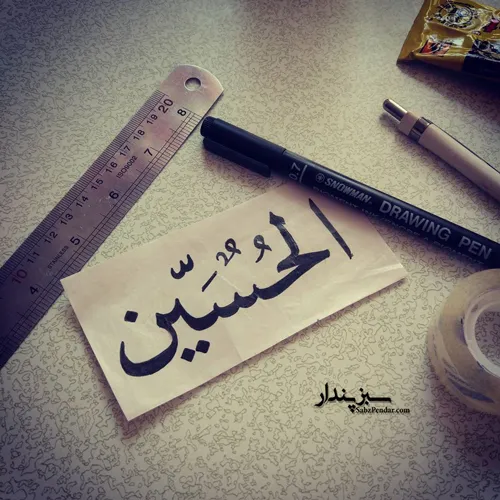 الحُسَیِّن
SNOWMAN DRAWING PEN
0.7
STAINLESS
ISO9002
4 5 6 7 8
10 11 12 13 14 15 16 17 18 19 20
سبز پندار
SabzPendar.com